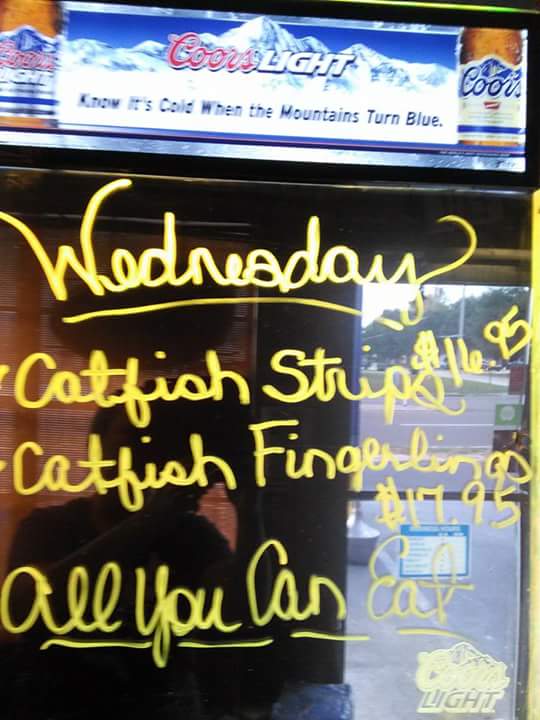 Coors LIGHT
Coors
Know It's Cold When the Mountains Turn Blue.
Wednesday
Catfish Strips $16.95
Catfish Fingerlings
$17.95
All You Can Eat
Coors
LIGHT